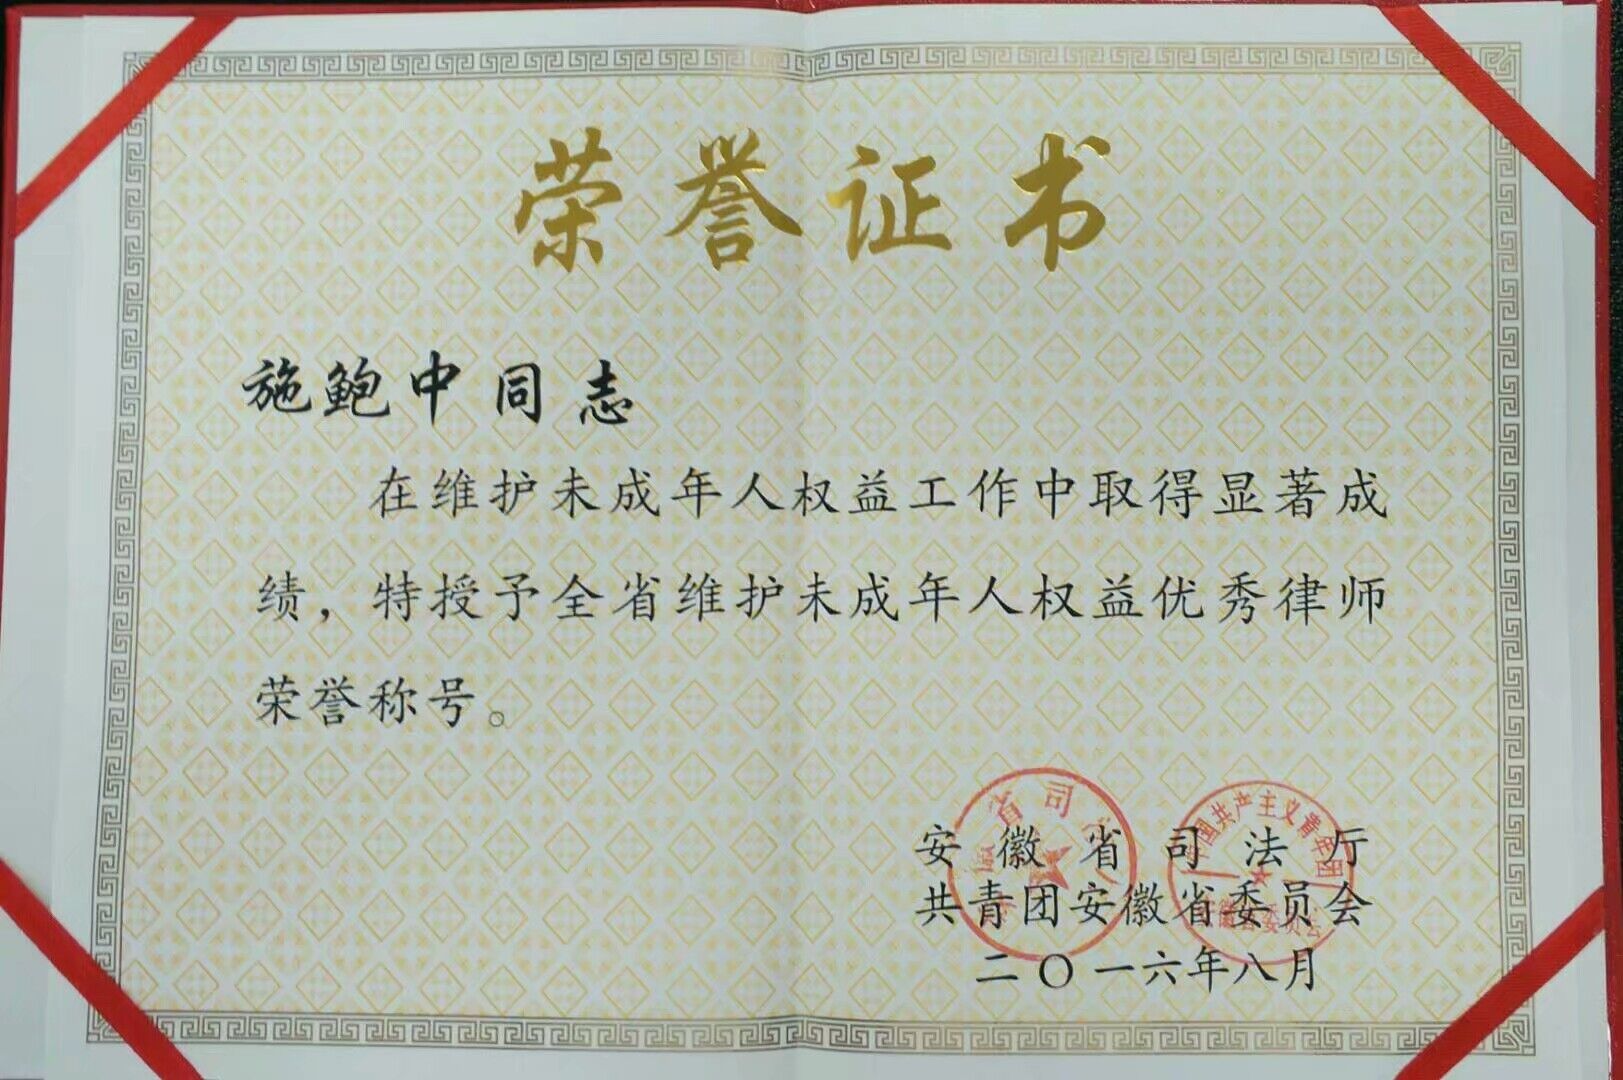 荣誉证书
施鲍中同志
在维护未成年人权益工作中取得显著成
绩，特授予全省维护未成年人权益优秀律师
荣誉称号。
安徽省司法厅
共青团安徽省委员会
二〇一六年八月